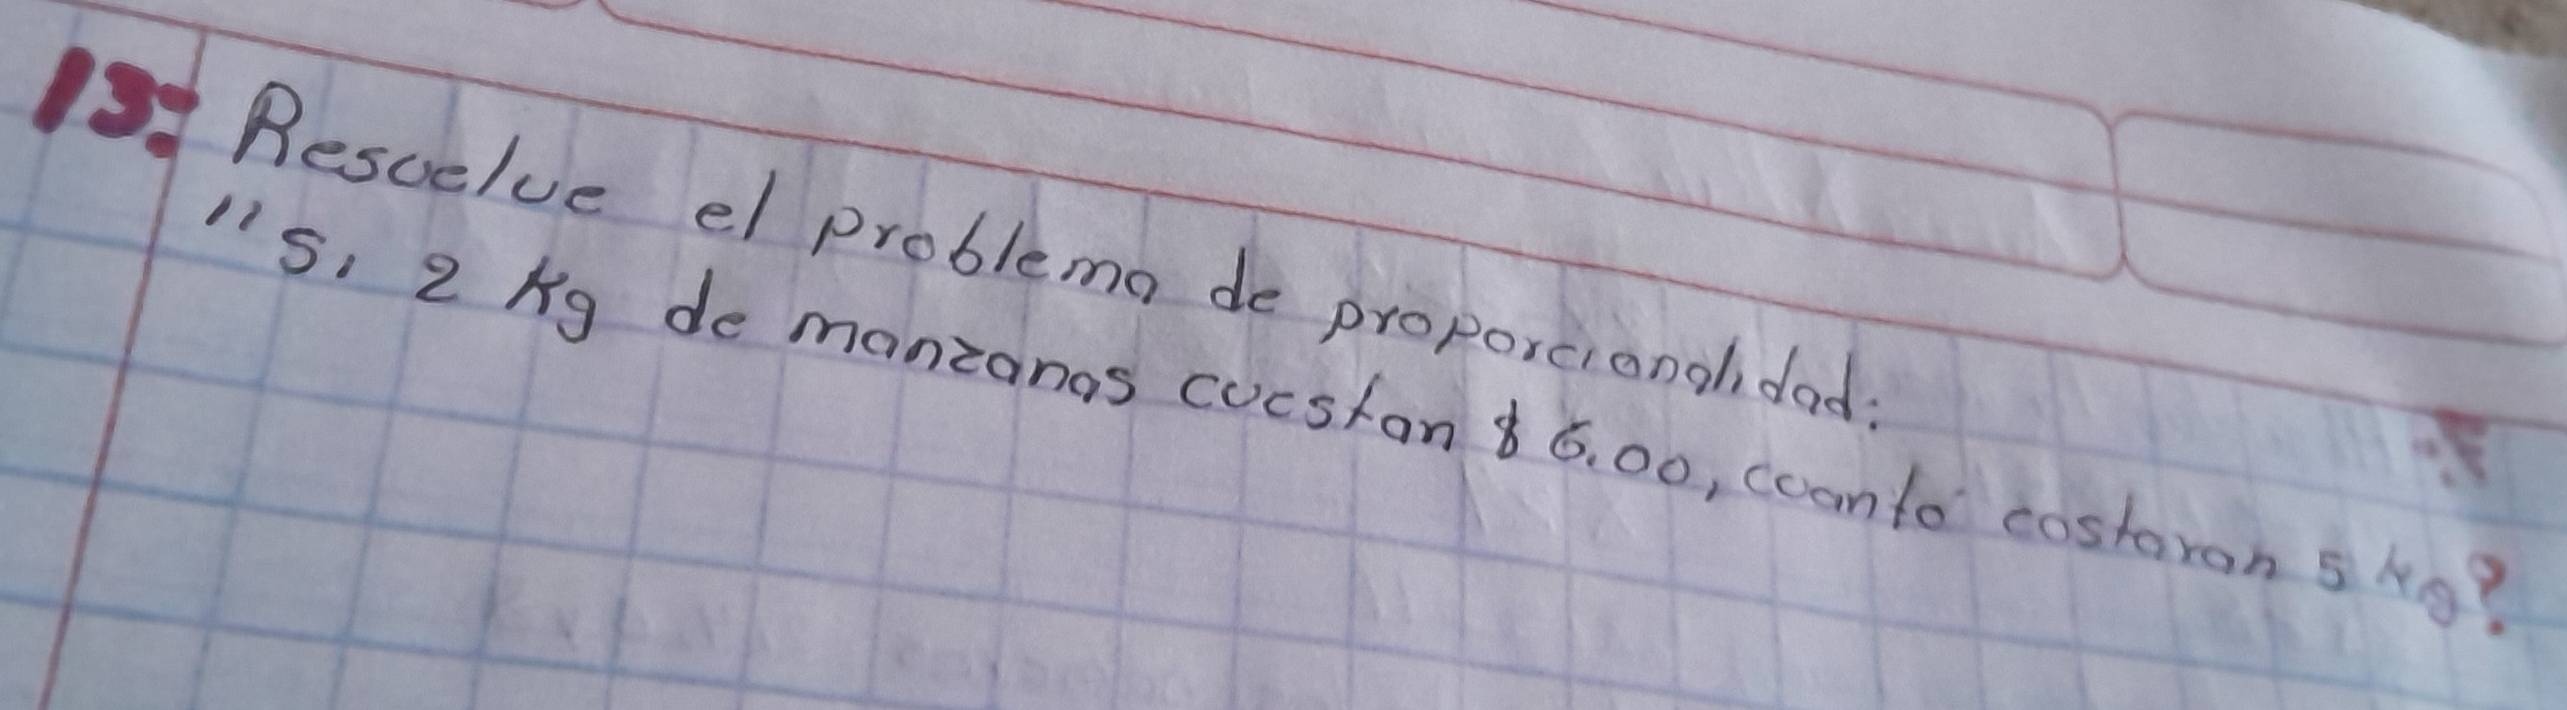 13: Resuelve el problema de proporcionalidad:
"Si 2 Kg de manzanas cuestan $ 6.00, cuanto costaran 5 Kg?